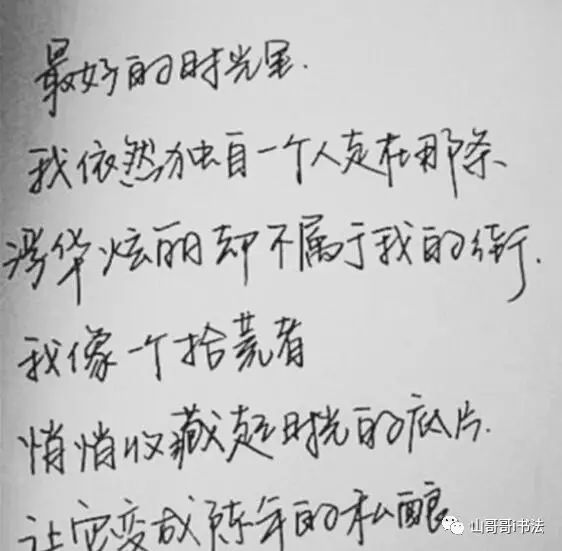 最好的时光里.
我依然独自一个人走在那条
浮华炫丽却不属于我的街.
我像一个拾荒者
悄悄收藏起时光的底片.
让它变成陈年的私酿
山哥哥i书法